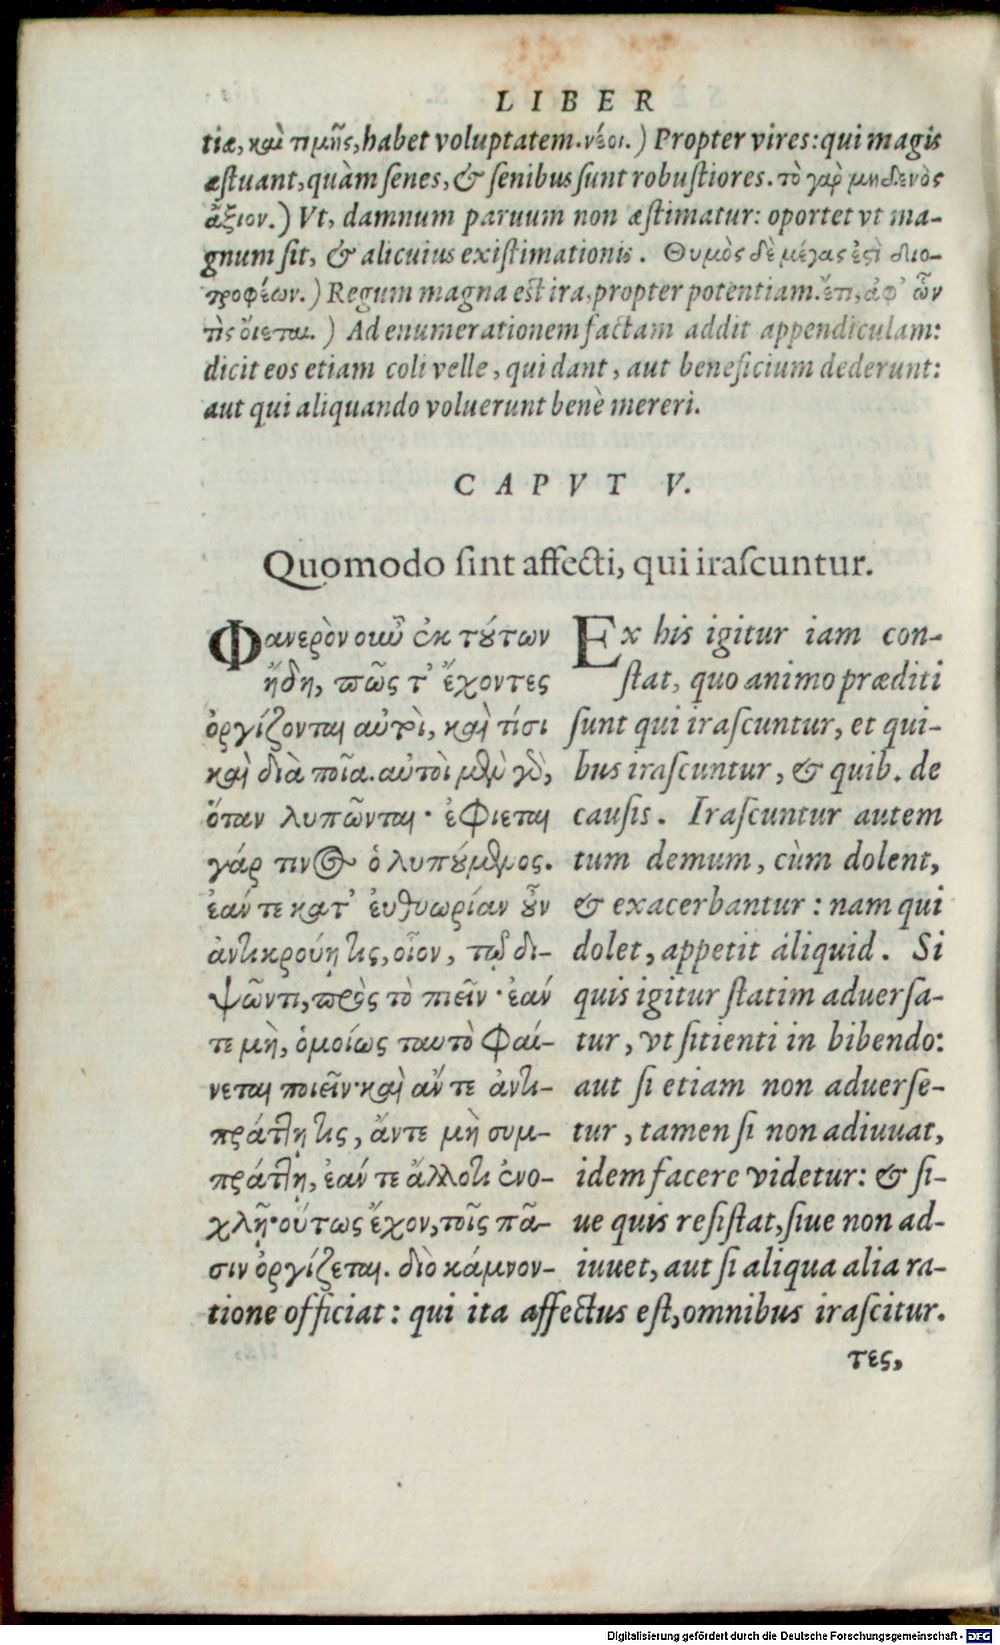 LIBER
tiæ, καὶ τιμῆς, habet voluptatem. νέοι.) Propter vires: qui magis
æstuant, quàm senes, & senibus sunt robustiores. τὸ γὰρ μηδενὸς
ἄξιον.) Vt, damnum paruum non æstimatur: oportet vt ma-
gnum sit, & alicuius existimationis. Θυμὸς δὲ μέγας ἐστὶ διο-
τροφέων.) Regum magna est ira, propter potentiam. ἔτι, ἀφ' ὧν
τὶς ὄιεται.) Ad enumerationem factam addit appendiculam:
dicit eos etiam coli velle, qui dant, aut beneficium dederunt:
aut qui aliquando voluerunt benè mereri.
CAPVT V.
Quomodo sint affecti, qui irascuntur.
Φανερὸν οὖν ἐκ τούτων
ἤδη, πῶς τ' ἔχοντες
ὀργίζονται αὐτοὶ, καὶ τίσι
καὶ διὰ ποῖα. αὐτοὶ μὲν γὰρ,
ὅταν λυπῶνται· ἐφιεται
γάρ τινος ὁ λυπούμενος.
ἐάν τε κατ' ἐυθυωρίαν οὖν
ἀντικρούῃ τις, οἷον, τῷ δι-
ψῶντι, πρὸς τὸ πιεῖν· ἐάν
τε μὴ, ὁμοίως ταυτὸ φαί-
νεται ποιεῖν· καὶ ἄν τε ἀντι-
πράττῃ τις, ἄντε μὴ συμ-
πράττῃ, ἐάν τε ἄλλοτι ἐνο-
χλῇ· οὕτως ἔχον, τοῖς πᾶ-
σιν ὀργίζεται. διὸ κάμνον-
Ex his igitur iam con-
stat, quo animo præditi
sunt qui irascuntur, et qui-
bus irascuntur, & quib. de
causis. Irascuntur autem
tum demum, cùm dolent,
& exacerbantur: nam qui
dolet, appetit aliquid. Si
quis igitur statim aduersa-
tur, vt sitienti in bibendo:
aut si etiam non aduerse-
tur, tamen si non adiuuat,
idem facere videtur: & si-
ue quis resistat, siue non ad-
iuuet, aut si aliqua alia ra-
tione officiat: qui ita affectus est, omnibus irascitur.
τες,
Digitalisierung gefördert durch die Deutsche Forschungsgemeinschaft - DFG